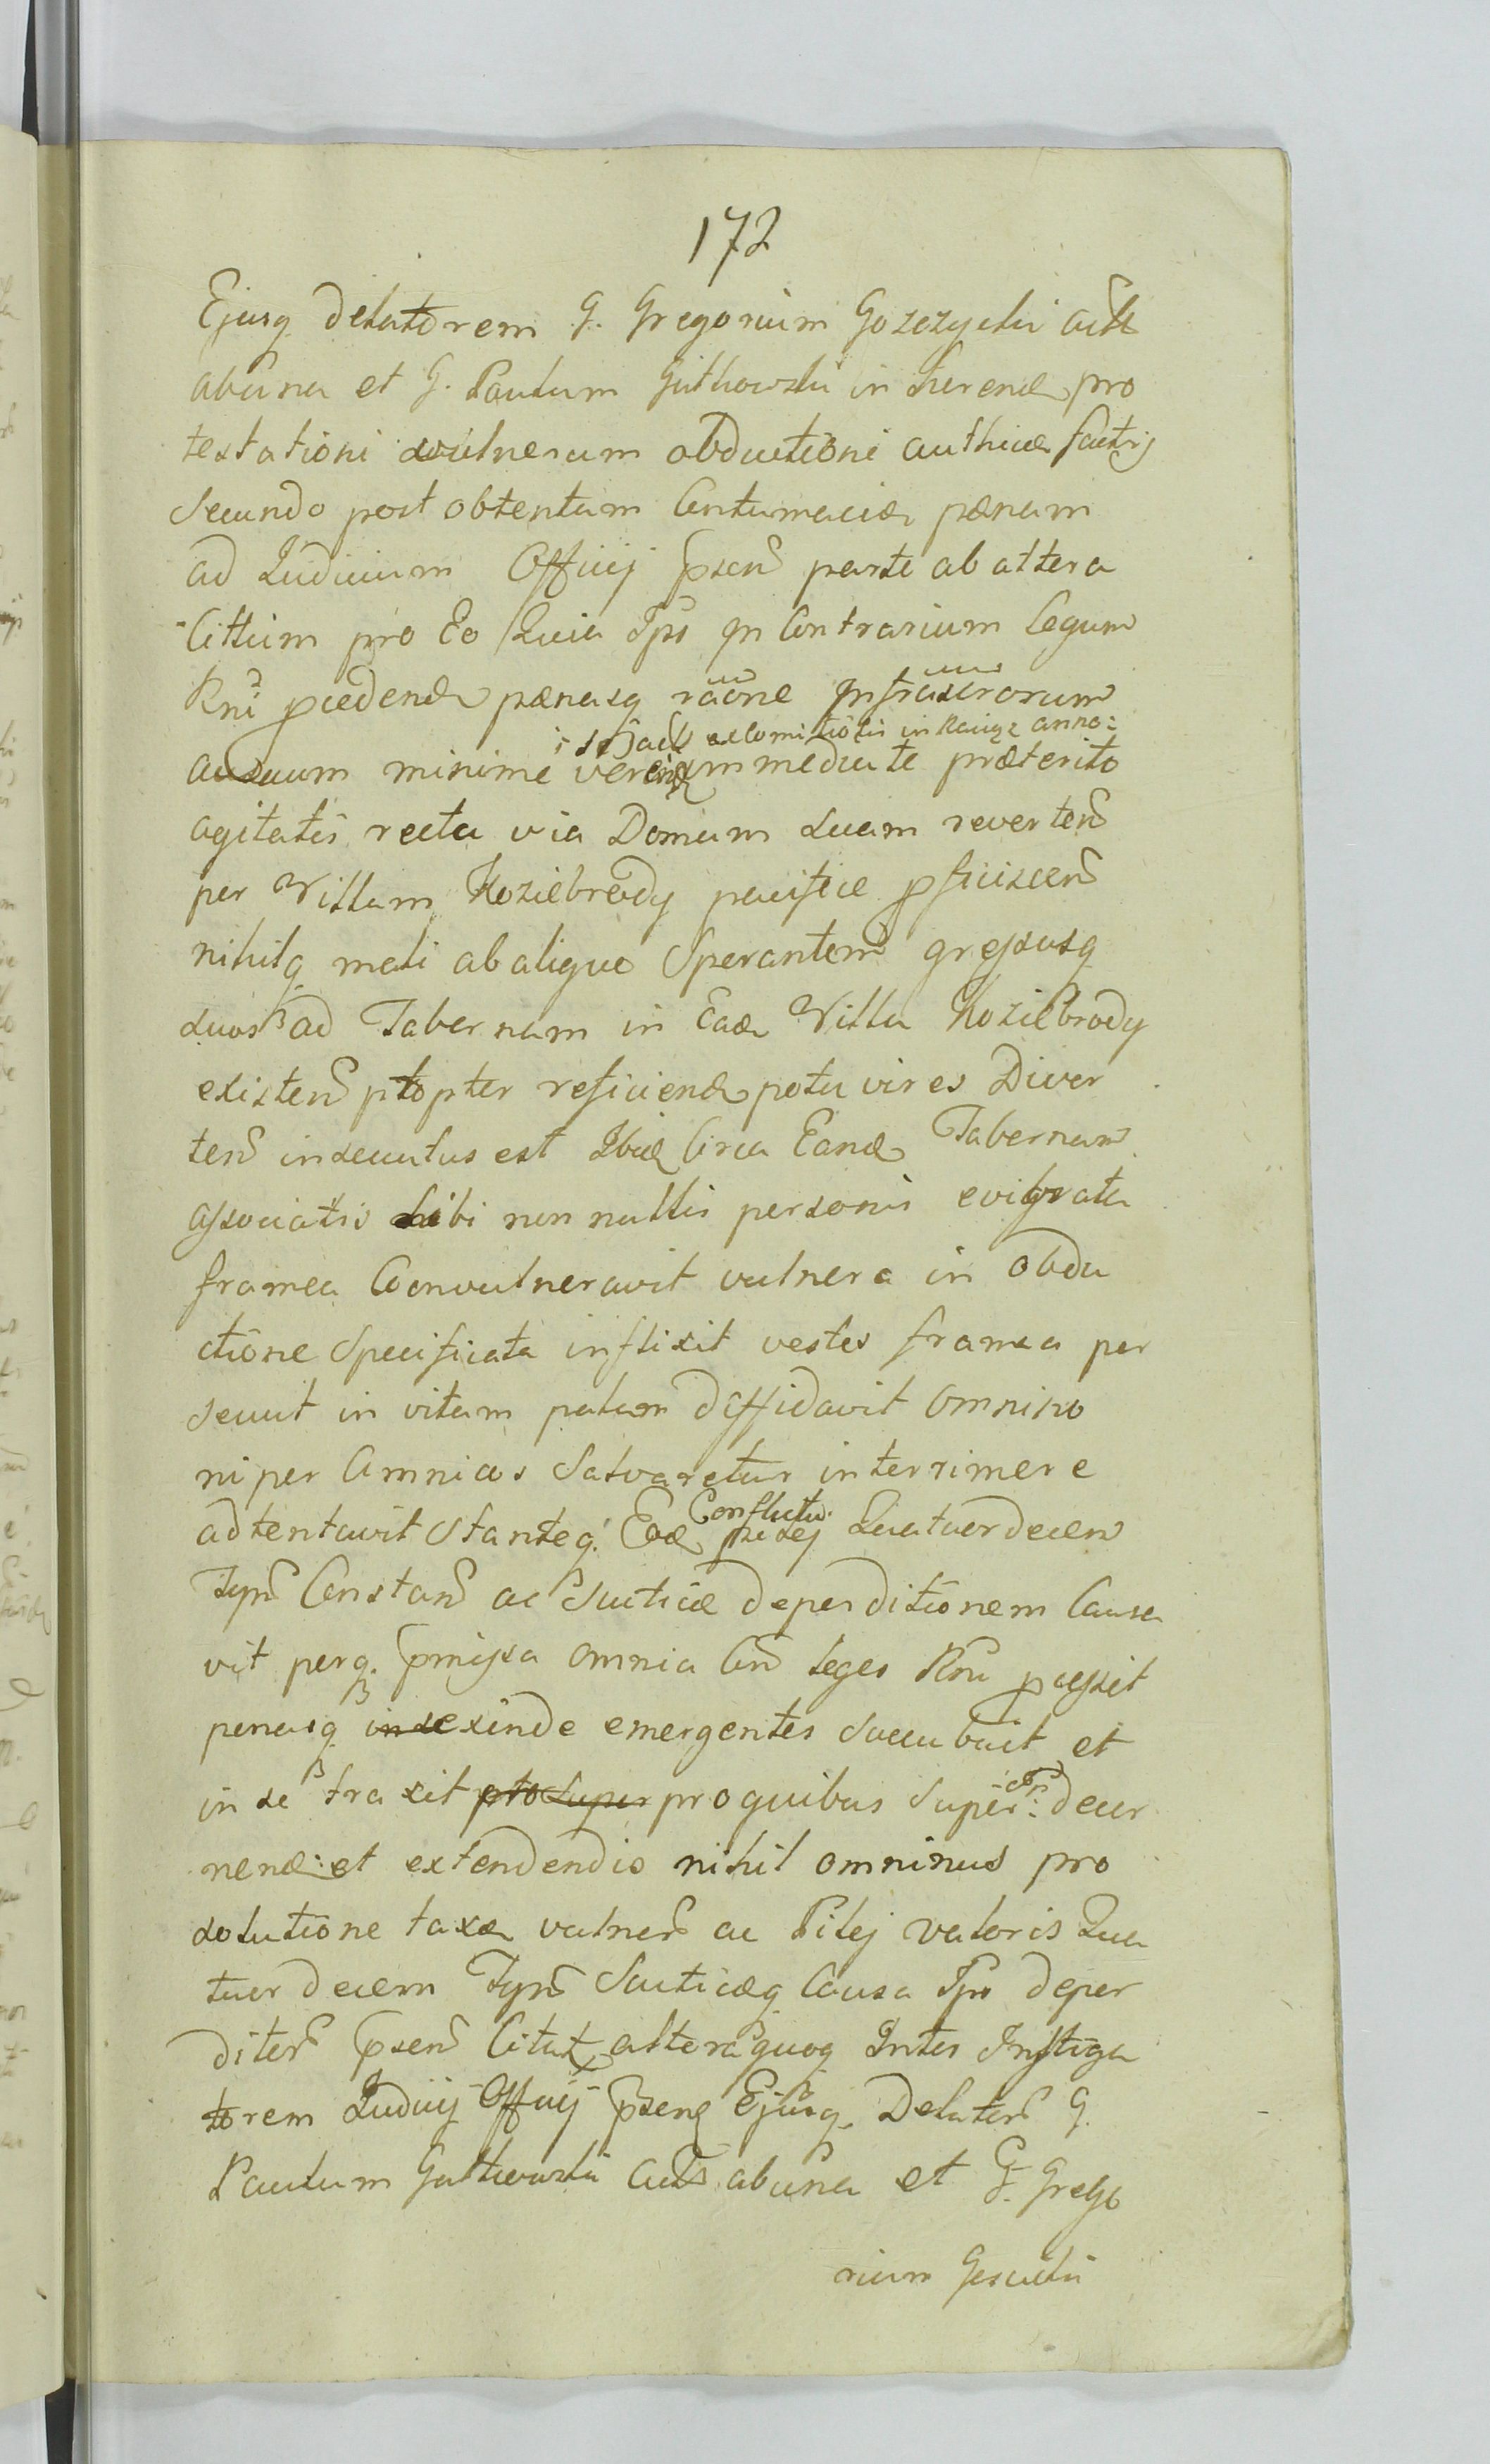 172
Ejusq delatorem G. Gregorium Gozezycki
abuna et G. Paulum Gutkowski in pro
testationi vulnerum obductioni authice factis
secundo post obtentam Contumaciæ pænam
ad Judicium Officij psen parte ab altera
Cittum pro Eo Quia Ips in Contrarium Legum
Rni pcedend pænasq raone infrascrorum
Comitiolis in anno:
ausuum minime immediate præterito
agitatis recta via Domum suam reverten
per Villam Koziebrody pacifice pficiscen
nihilq mali ab aliquo Sperantem gressusq
suos ad Tabernam in Eadæ Villa Koziebrody
existen propter reficiend potu vires Diver
ten insecutus est Ibid Circa Eand Tabernam
associatis sibi non nullis personis evibrata
framea Convulneravit vulnera in obdu
ctione Specificata inflixit vestes framea per
secuit in vitam palam diffidavit omnino
ni per Amicos Salvaretur interrimere
Conflictu
adtentavit Stanteq Eod pilej Quatuordecem
Tynf Constan ac Scuticæ deperditionem Causa
vit perq pmissa omnia Con leges Rni pcessit
penasq exinde emergentes succubuit et
in se traxit pro super pro quibus super decer
nend et extendendis nihil ominus pro
solutione taxæ vulner ac Pilej valoris Qua
tuordecem Tynf Scuticæq Causa Ips deper
diten psen Citat altera quoq Inter Instiga
torem Judicij Officij psen Ejusq Delatore G
Paulum Gutkowski abuna et G. Grego
rium